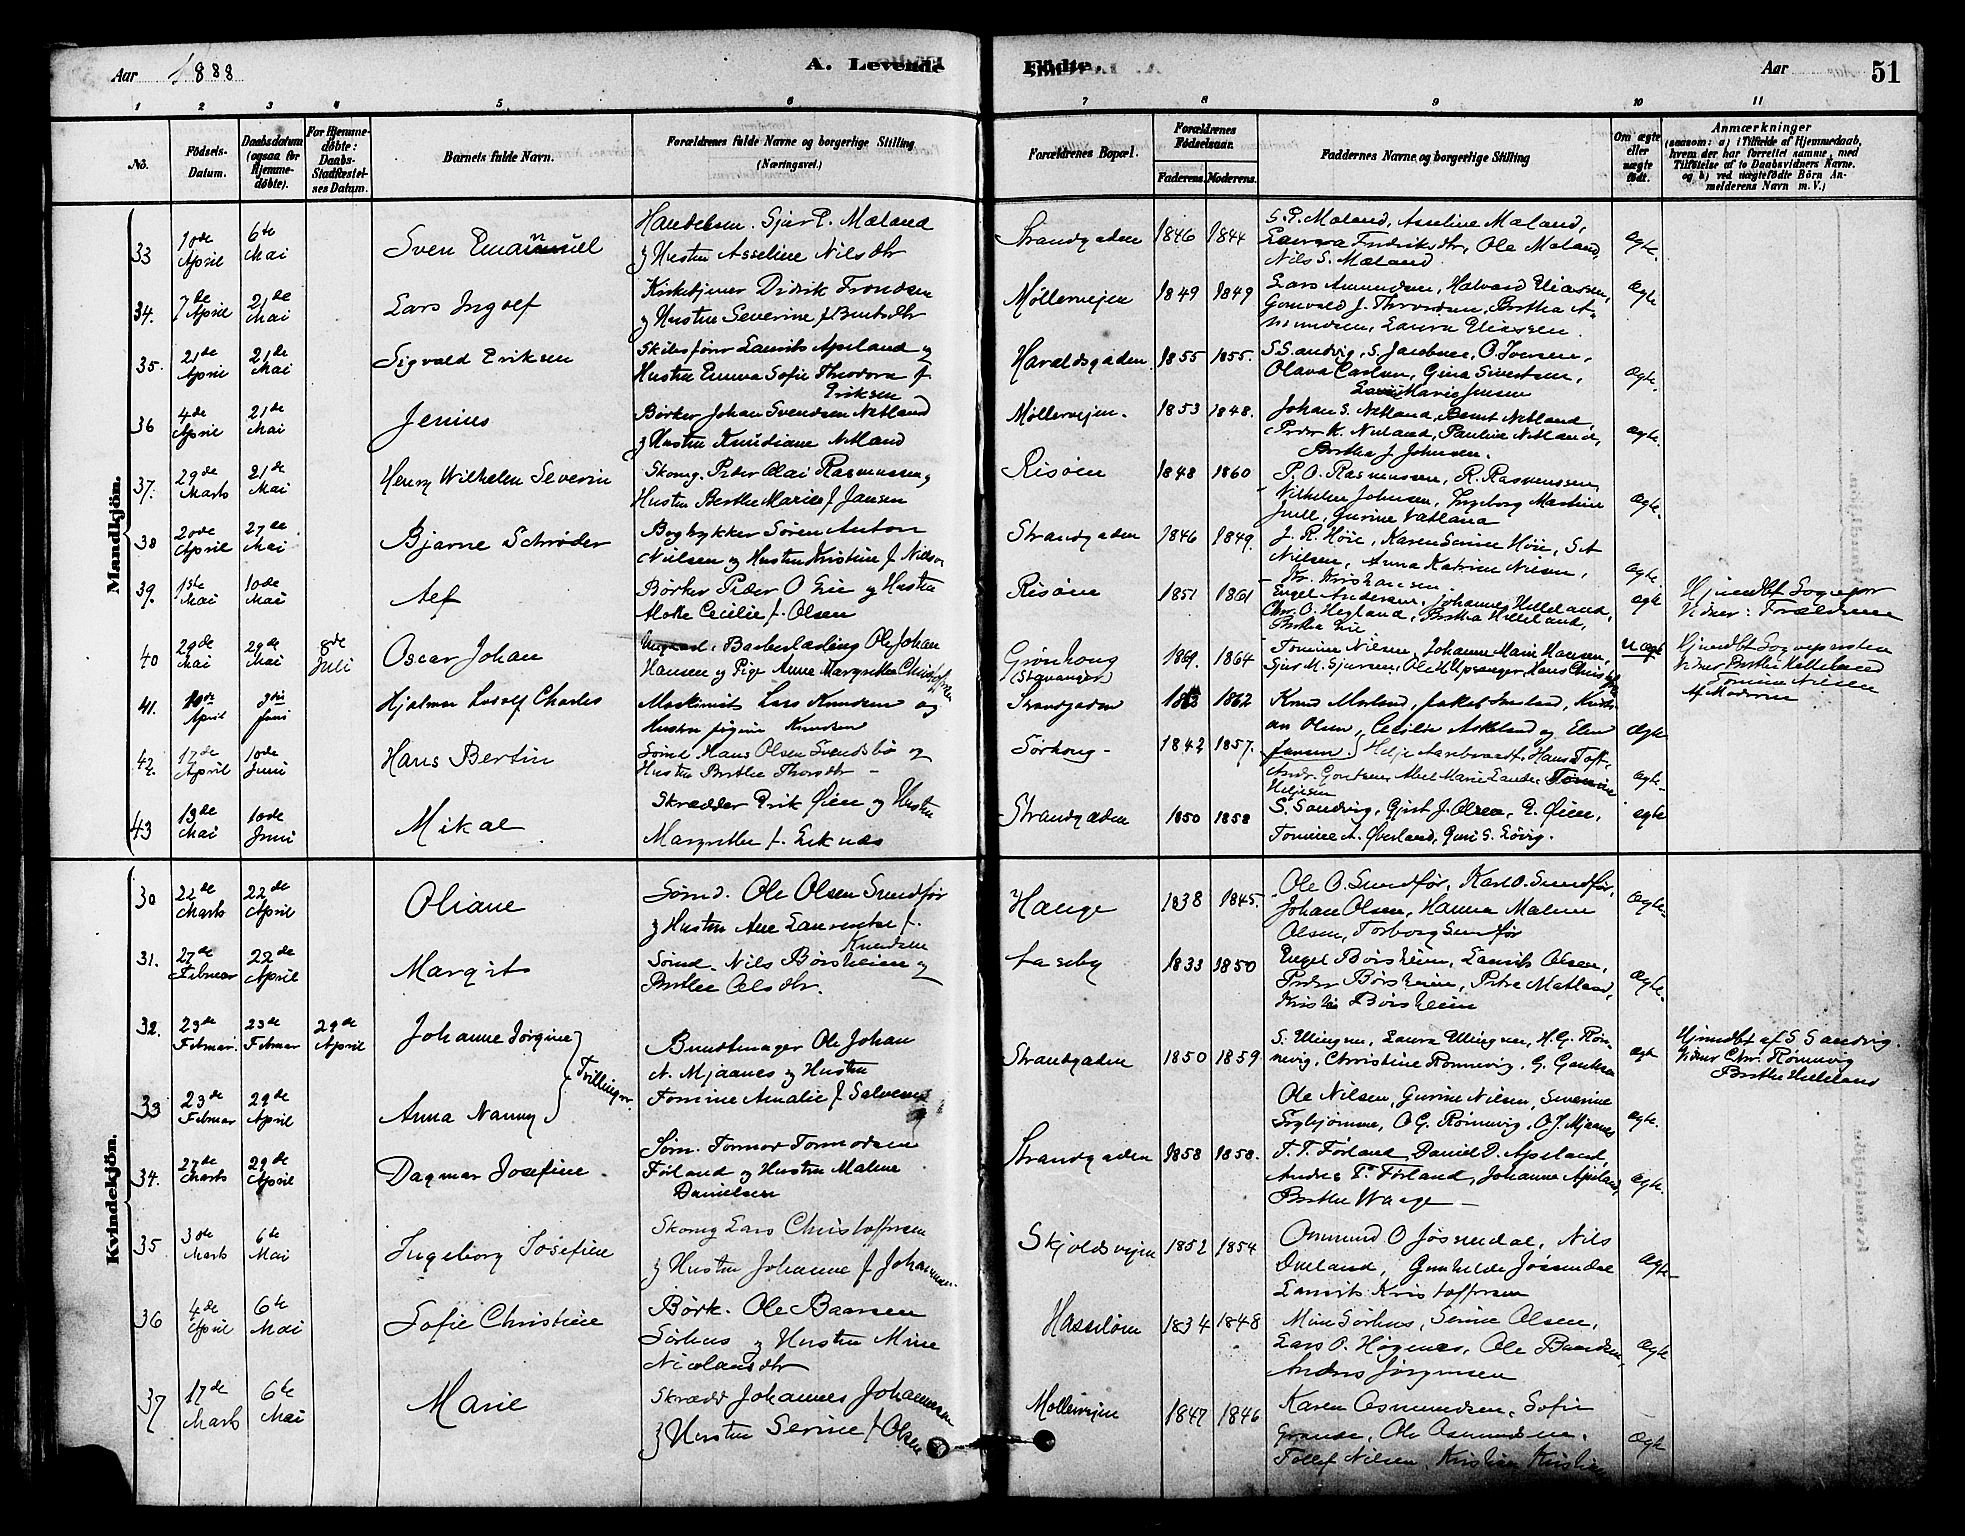 Aar 1888
A. Levende
Födte.
Aar
51
1 2 3 4 5. 6 7 8 9 10 11
No.
Födsels-Datum.
Daabsdatum (ogsaa for Hjemmedöbte).
For Hjemmedöbte: Daabs-Stadfestelses Datum.
Barnets fulde Navn.
Forældrenes fulde Navne og borgerlige Stilling (Næringsvei.)
Forældrenes Bopæl.
Forældrenes Födselsaar.
Faderens. Moderens.
Faddernes Navne og borgerlige Stilling
Om ægte eller uægte födt.
Anmærkninger
(saasom: a) i Tilfælde af Hjemmedaab, hvem der har forrettet samme, med Tilföielse af to Daabsvidners Navne. og b) ved uægtefödte Börn Anmelderens Navn m. V.)
Mandkjön.
33 10de April 6te Mai Sven Emanuel
Sjur P. Mæland
og Hustru Asseline Nilsdtr
Strandgaden 1846 1844
S. P. Mæland, Asseline Mæland,
Laura Fredriksdtr, Ole Mæland,
Nils S. Mæland
Ægte.
34. 7de April 21de Mai Lars Ingolf
Kirketjener Didrik Trondsen
og Hustru Severine f. Berntsdtr
Møllerveien 1849 1849
Lars Amundsen, Halvard Eliassen,
Laura Eliassen.
Ægte
35. 21de April 21de Mai Sigvald Eriksen
Skibsfører Laurits Apeland og
Hustru Emma Sofie Theodora f.
Eriksen
Haraldsgaden 1855 1855.
S. Sandvig, S. Jacobsen, O. Iversen,
Olava Carlsen, Gina Sivertsen,
Marie Jensen
Ægte.
36 4de April 21de Mai Jenius
Børker Johan Svendsen Netland
og Hustru Knudiane Netland
Møllerveien. 1853 1848.
Johan S. Netland, Bernt Netland,
Peder K. Netland, Pauline Netland,
Berthe J. Johnsen.
Ægte.
37. 29de Marts 21de Mai Henry Wilhelm Severin
Skomg. Peder Olai Rasmussen og
Hustru Berthe Marie f. Jansen
Risøen 1848 1860
P. O. Rasmussen, R. Rasmussen,
Vilhelm Johnsen, Ingeborg Martine
Juell, Gurine Vatland
Ægte.
38 20de April 27de Mai Bjarne Schrøder
Bogtrykker Søren Anton
Nielsen og Hustru Kristine f. Nielsen
Strandgaden 1846 1849.
J. R. Høie, Karen Serine Høie, S. A
Nielsen, Anna Katrine Nielsen,
Kr. Kristiansen
Ægte.
39. 1ste Mai 10de Mai Alf
Børker Peder O Lie og Hustru
Cecilie f. Olsen
Risøen 1851 1861
Engel Andersen, Johannes Helleland,
Chr. O. Hegland, Bertha Helleland,
Bertha Lie
Ægte
Hjemdbt Sognepr
Vidner: Forældrene
40 29de Mai 29de Mai 8de Juli Oscar Johan
Ungkarl, Barberlærling Ole Johan
Hansen og Pige Anne Margrethe Christoffersen
Grønhoug
(Stavanger)
1869. 1864
Tomine Nielsen, Johanne Marie Hansen,
Sjur M. Sjursen, Ole H Upsanger
Uægte
Hjemdbt Sognepresten
Vidner Berthe Helleland
Tomine Nielsen
Af Moderen
41. 10de April 3die Juni Hjalmar Ludolf Charles
Maskinist Lars Knudsen og
Hustru Jørgine Knudsen
Strandgaden 1863 1862
Knud Mørland, Jakob
Olsen, Cecilie Askeland og Elen
Jensen
Ægte
42. 17de April 10de Juni Hans Bertin
Sømd Hans Olsen Svendsbø og
Hustru Berthe Thorsdtr
Sørhoug 1842 1857.
Helje Aarbraadt, Hans Toft,
Andr. Gautesen, Abel Marie Sande, Tomine
Heljesen
Ægte
43 13de Mai 10de Juni Mikal
Skrædder Erik Øien og Hustru
Margrethe f. Eiknæs
Strandgaden 1850 1858
S. Sandvig, Gjert J. Olsen, E. Øien,
Tomine A. Øverland, Guri S. Løvig.
Ægte
Kvindekjön.
30 22de Marts 22de April Oliane
Sømd. Ole Olsen Sundfør
og Hustru Ane Laurentse f.
Knudsen
Hauge 1838 1845.
Ole O. Sundfør, Karl O. Sundfør,
Johan Olsen, Hanna Malene
Olsen, Torborg Sundfør
Ægte.
31. 27de Februar 22de April Margit
Sømd. Nils Børsheim og
Berthe Olsdtr.
Lasaby 1833 1850
Engel Børsheim, Laurits Olsen,
Peder Børsheim, Petre Matland,
Kristi Børsheim
Ægte.
32. 23de Februar. 23de Februar 29de April Johanne Jørgine
Tvillinger.
Buntmager Ole Johan
N. Mjaanes og Hustru
Tomine Amalie f. Salvesen
Strandgaden 1850 1859
S. Ullingsen, Laura Ullingsen, H. G. Røn-
nevig, Christine Rønnevig, G. Gautesen
Ægte
Hjemdbt af S Sandvig.
Vidner Chr. Rønnevig
Berthe Helleland
33 23de Februar 29de April Anna Nanny
Ole Nilsen, Gurine Nilsen, Severine
O G. Rønnevig, O. J. Mjaanes
Ægte.
34. 27de Marts 29de April Dagmar Josefine
Søm. Tormod Tormodsen
Førland og Hustru Malene
Danielsen
Strandgaden 1858 1858.
T. T. Førland, Daniel D. Apeland,
Andrea T. Førland, Johanne Apeland,
Berthe Waage
Ægte.
35 30de Marts 6te Mai Ingeborg Josefine
Skomg Lars Christoffersen
og Hustru Johanne f. Johannessen.
Skjoldsveien 1852 1854
Ommund O Jøssendal, Nils
Dueland, Gunhilde Jøssendal
Laurits Kristoffersen
Ægte
36 4de April 6te Mai Sofie Christine
Børk. Ole Baarsen
Sørhus og Hustru Mine
Nicolausdtr
Hasseløen 1834 1848
Mine Sørhus, Serine Olsen,
Lars O. Høgenes, Ole Baardsen,
Anders Jørgensen
Ægte
37 17de Marts 6te Mai Marie
Skrædd Johannes Johannessen
og Hustru Serine f. Olsen
Møllerveien 1847 1846
Karen Osmundsen, Sofie
Grande, Ole Osmundsen,
Tollef Nilsen, Kristian Kristian
Ægte